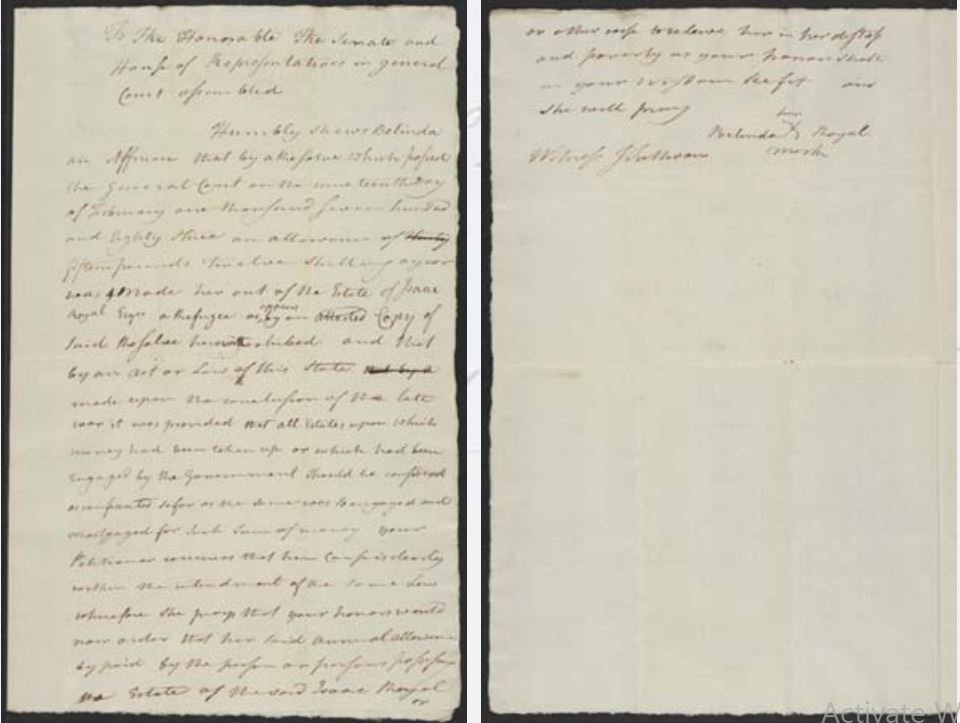 To The Honorable The Senate and
House of Representatives in general
Court assembled
Humbly shews Belinda
an Affrican that by a Resolve which passed
the General Court on the nine teenth Day
of February one thousand seven hundred
and Eighty three an allowance of thirty
fifteen pounds twelve shillings a year
was made her out of the Estate of Isaac
Royal Esqr a Refugee as appears by an attested Copy of
said Resolve herewith and that
by an act or Law of this State not by a
made upon the conclusion of the late
war it was provided that all Estates upon which
money had been taken up or which had been
Engaged by the Government should be considered
as so far as the same was so engaged and
mortgaged for such sum of money your
Petitioner that her Case is clearly
within the intendment of the same Law
wherefore she prays that your honors would
now order that her said annual allowance
by paid by the person or persons
the Estate of the said Isaac Royal
or
or other wise to releive her in her distress
and poverty as your honors shall
in your wisdom see fit and
she will pray
her
Belinda X Royal
Witness J Sullivan mark
Activate W